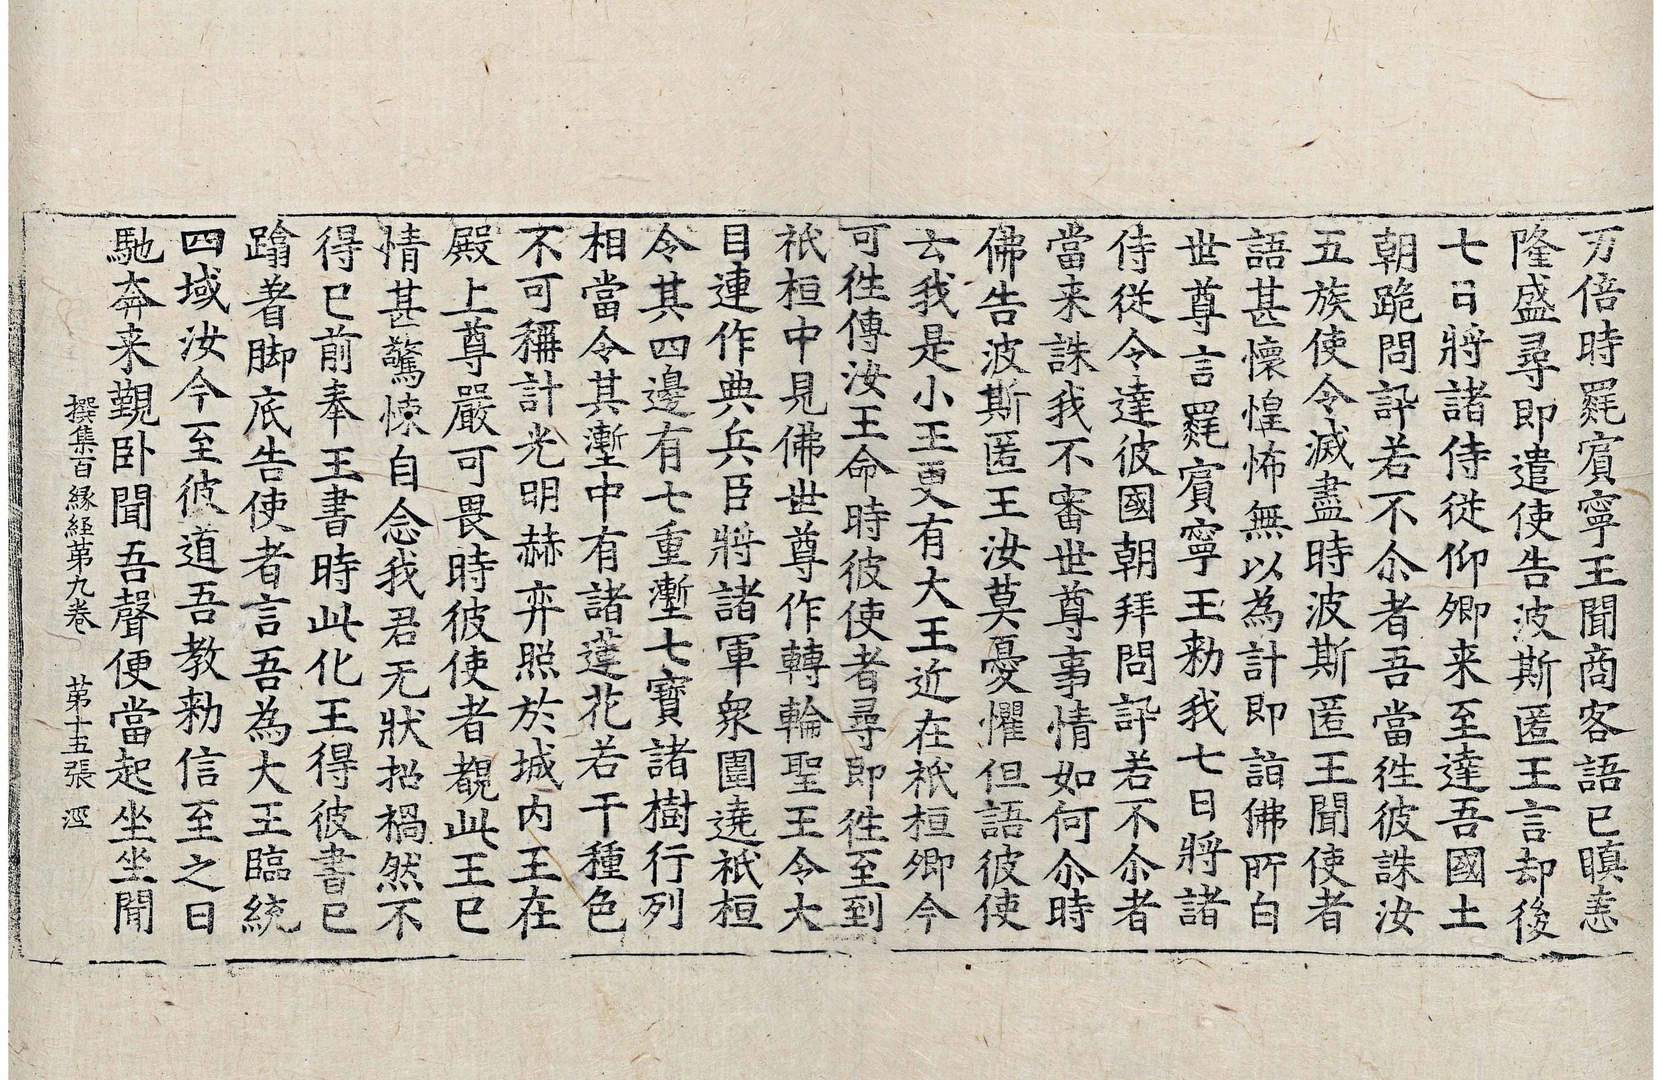 万倍時罽賔寧王聞商客語已瞋恚
隆盛尋即遣使告波斯匿王言却後
七日將諸侍従仰卿来至達吾國土
朝跪問訊若不尒者吾當徃彼誅汝
五族使令滅盡時波斯匿王聞使者
語甚懷惶怖無以為計即詣佛所白
世尊言罽賔寧王勑我七日將諸
侍從令達彼國朝拜問訊若不尒者
當来誅我不審世尊事情如何尒時
佛告波斯匿王汝莫憂懼但語彼使
云我是小王更有大王近在祇桓卿今
可徃傳汝王命時彼使者尋即徃至到
祇桓中見佛世尊作轉輪聖王令大
目連作典兵臣將諸軍衆圍遶祇桓
令其四邊有七重壍七寳諸樹行列
相當令其壍中有諸蓮花若干種色
不可稱計光明赫弈照於城内王在
殿上尊嚴可畏時彼使者覩此王已
情甚驚悚自念我君无狀招禍然不
得已前奉王書時此化王得彼書已
蹹著脚底告使者言吾為大王臨統
四域汝今至彼道吾教勑信至之日
馳奔来覲卧聞吾聲便當起坐坐聞
撰集百縁経第九卷 第十五張 涇